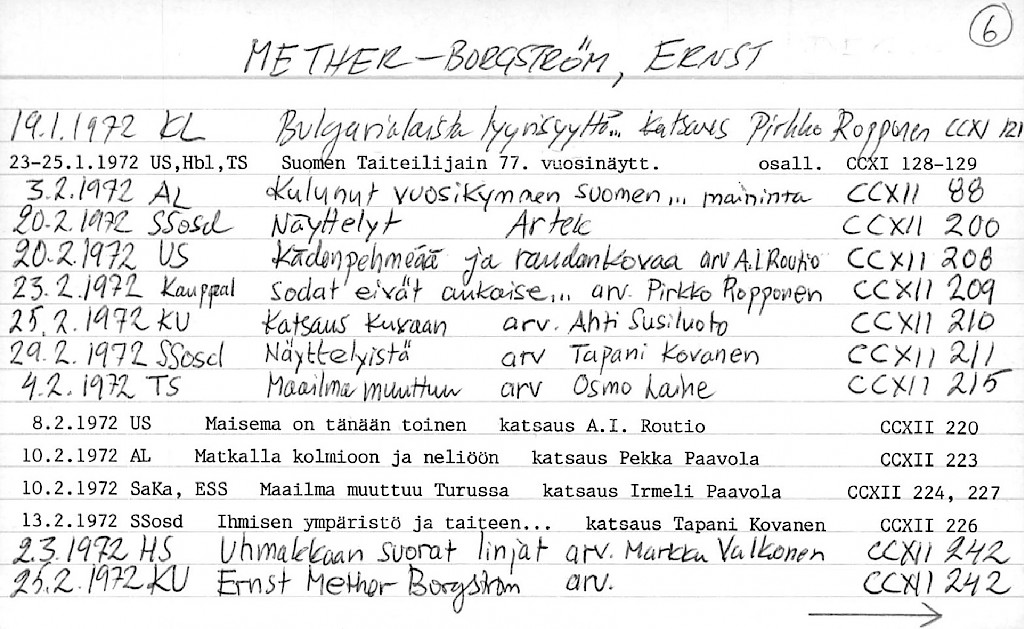 6
METHER-BORGSTRÖM, ERNST
19.1.1972 KL Bulgarialaista lyyrisyyttä... katsaus Pirkko Ropponen CCXI 121
23-25.1.1972 US,Hbl,TS Suomen Taiteilijain 77. vuosinäytt. osall. CCXI 128-129
3.2.1972 AL Kulunut vuosikymmen suomen... maininta CCXII 88
20.2.1972 SSosd Näyttelyt Artek CCXII 200
20.2.1972 US Kädenpehmeää ja raudankovaa arv A.I Routio CCXII 208
23.2.1972 Kauppal Sodat eivät aukaise... arv. Pirkko Ropponen CCXII 209
25.2.1972 KU Katsaus Kuvaan arv. Ahti Susiluoto CCXII 210
29.2.1972 SSosd Näyttelyistä arv Tapani Kovanen CCXII 211
4.2.1972 TS Maailma muuttuu arv Osmo Laine CCXII 215
8.2.1972 US Maisema on tänään toinen katsaus A.I. Routio CCXII 220
10.2.1972 AL Matkalla kolmioon ja neliöön katsaus Pekka Paavola CCXII 223
10.2.1972 SaKa, ESS Maailma muuttuu Turussa katsaus Irmeli Paavola CCXII 224, 227
13.2.1972 SSosd Ihmisen ympäristö ja taiteen... katsaus Tapani Kovanen CCXII 226
2.3.1972 HS Uhmakkaan suorat linjat arv. Markku Valkonen CCXII 242
25.2.1972 KU Ernst Mether-Borgström arv. CCXII 242